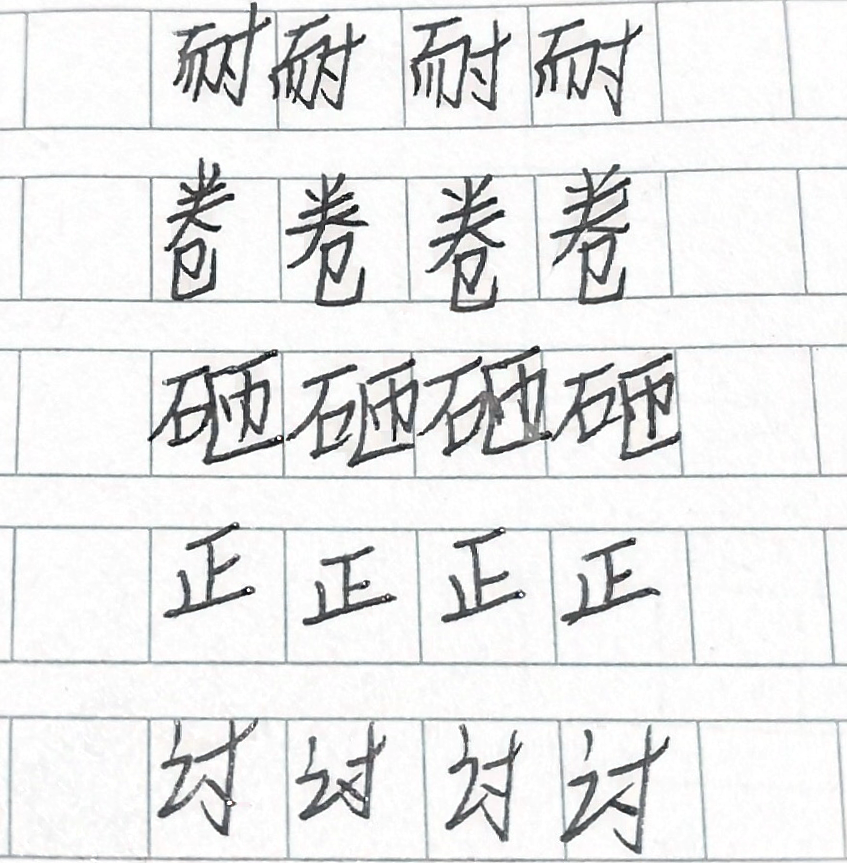 耐耐耐耐
卷卷卷卷
硒硒硒硒
正正正正
讨讨讨讨